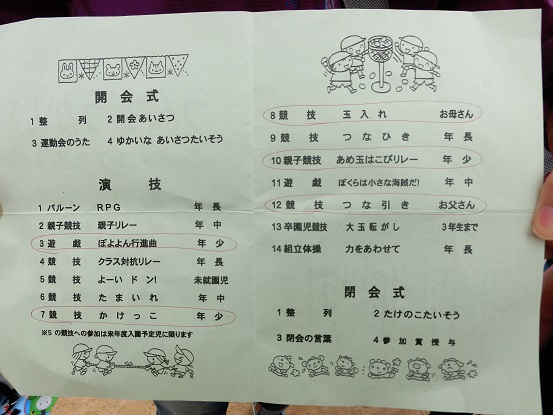 開会式
1 整 列 2 開会あいさつ
3 運動会のうた 4 ゆかいな あいさつたいそう
演 技
1 バルーン RPG 年 長
2 親子競技 親子リレー 年 中
3 遊 戯 ぽよよん行進曲 年 少
4 競 技 クラス対抗リレー 年 長
5 競 技 よーい ドン! 未就園児
6 競 技 たまいれ 年 中
7 競 技 かけっこ 年 少
※5 の競技への参加は来年度入園予定児に限ります
8 競 技 玉 入 れ お母さん
9 競 技 つなひき 年 長
10 親子競技 あめ玉はこびリレー 年 少
11 遊 戯 ぼくらは小さな海賊だ! 年 中
12 競 技 つな引き お父さん
13 卒園児競技 大玉転がし 3年生まで
14 組立体操 力をあわせて 年 長
閉会式
1 整 列 2 たけのこたいそう
3 閉会の言葉 4 参加賞授与